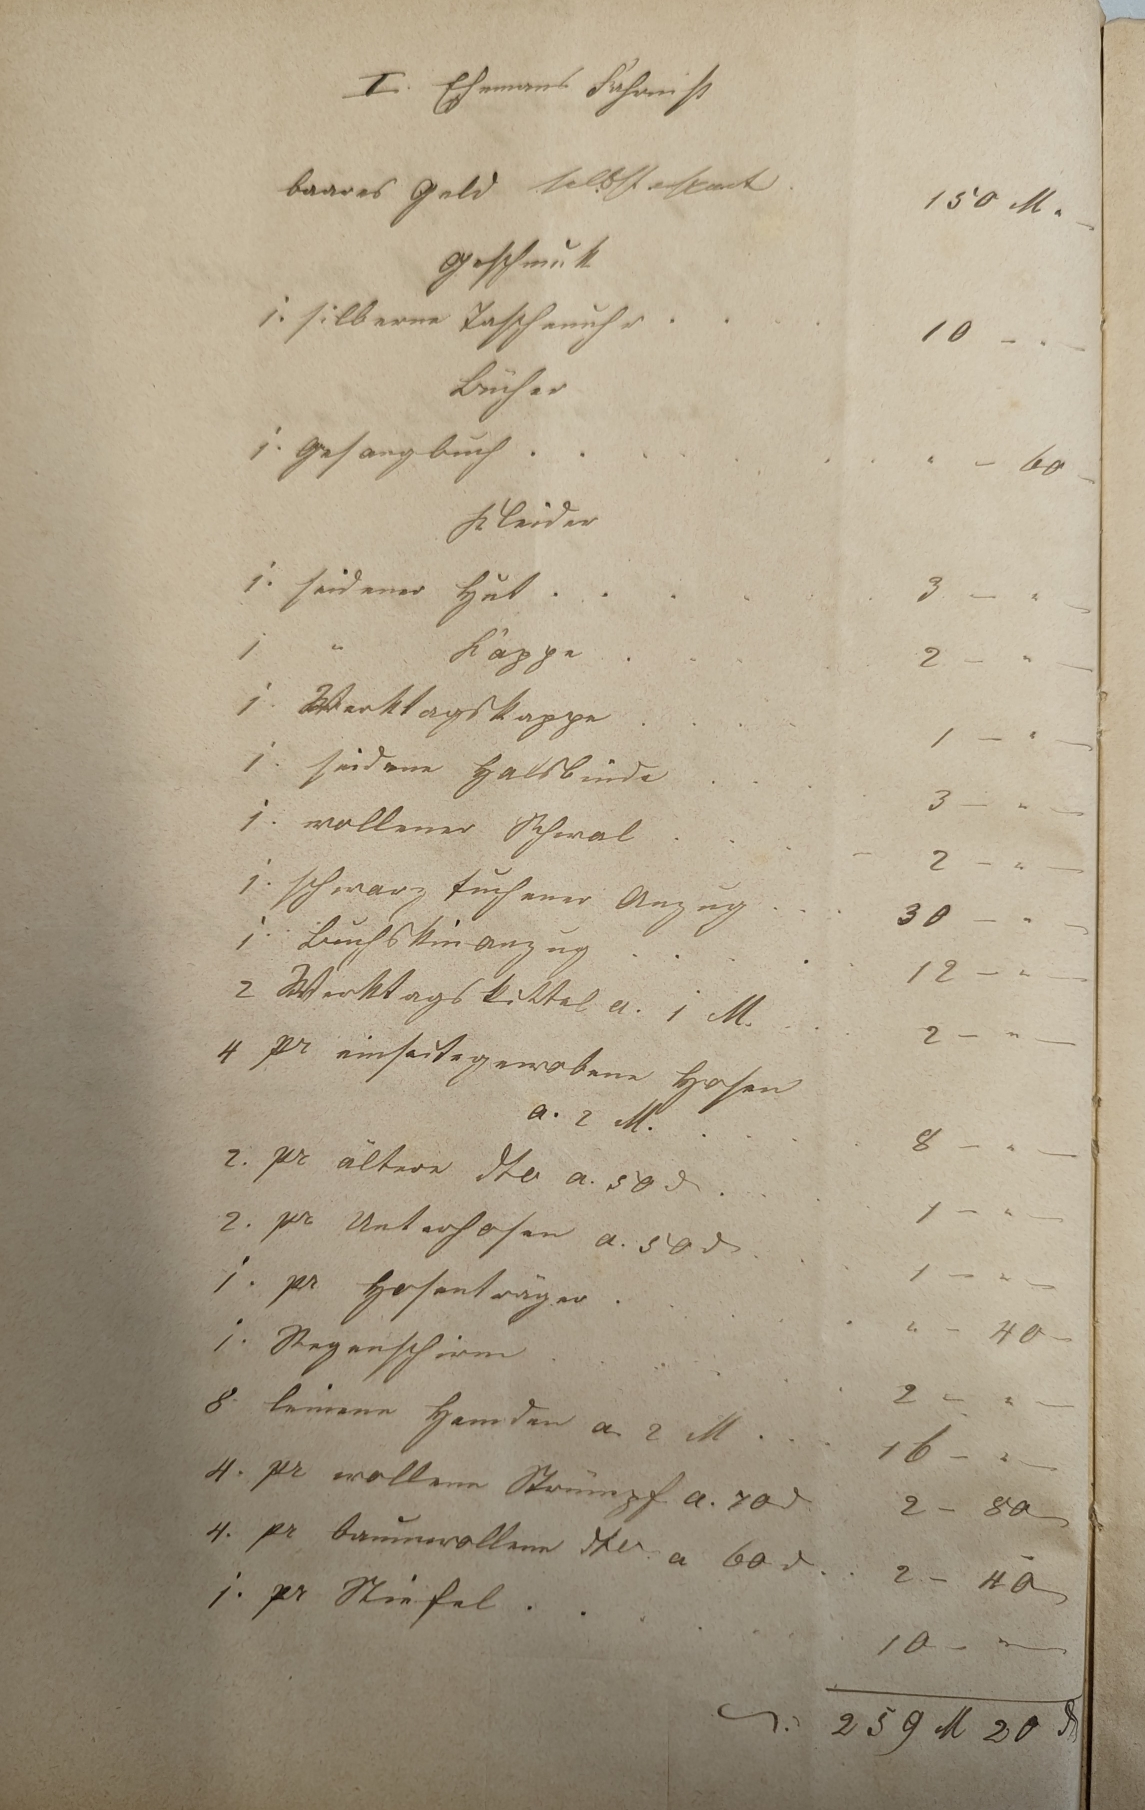 I. Ehemans Fahrniß
baares Geld selbst erspart. 150 M. „
Geschmuk
1. silberne Taschenuhr . . . 10 – „ –
Bücher
1. Gesangbuch . . . . . . . „ – 60
Kleider
1. seidener Hut . . . . . 3 – „ –
1 „ Kappe . . . 2 – „ –
1. Werktagskappe . . . . 1 – „ –
1. seidene Halsbinde . . . . 3 – „ –
1. wollener Schwal . . . – 2 – „ –
1. schwarz tuchener Anzug . . . 30 – „ –
1. Buchskinanzug . . . . . 12 – „ –
2 Werktagskittel a. 1 M. . . . 2 – „ –
4 pr einseitegewobene Hosen
a. 2 M. . . . . 8 – „ –
2. pr ältere dto a. 50 ₰ . . . 1 – „ –
2. pr Unterhosen a. 50 ₰ . . . 1 – „ –
1. pr Hosenträger . . . . . „ – 40 –
1. Regenschirm . . . . . 2 – „ –
8 leinene Hemden a. 2 M . . . 16 – „ –
4. pr wollene Strümpf a. 70 ₰ 2 – 80
4. pr baumwollene dto a 60 ₰ . . . 2 – 40
1. pr Stiefel . . . . . . 10 – „ –
259 M 20 ₰